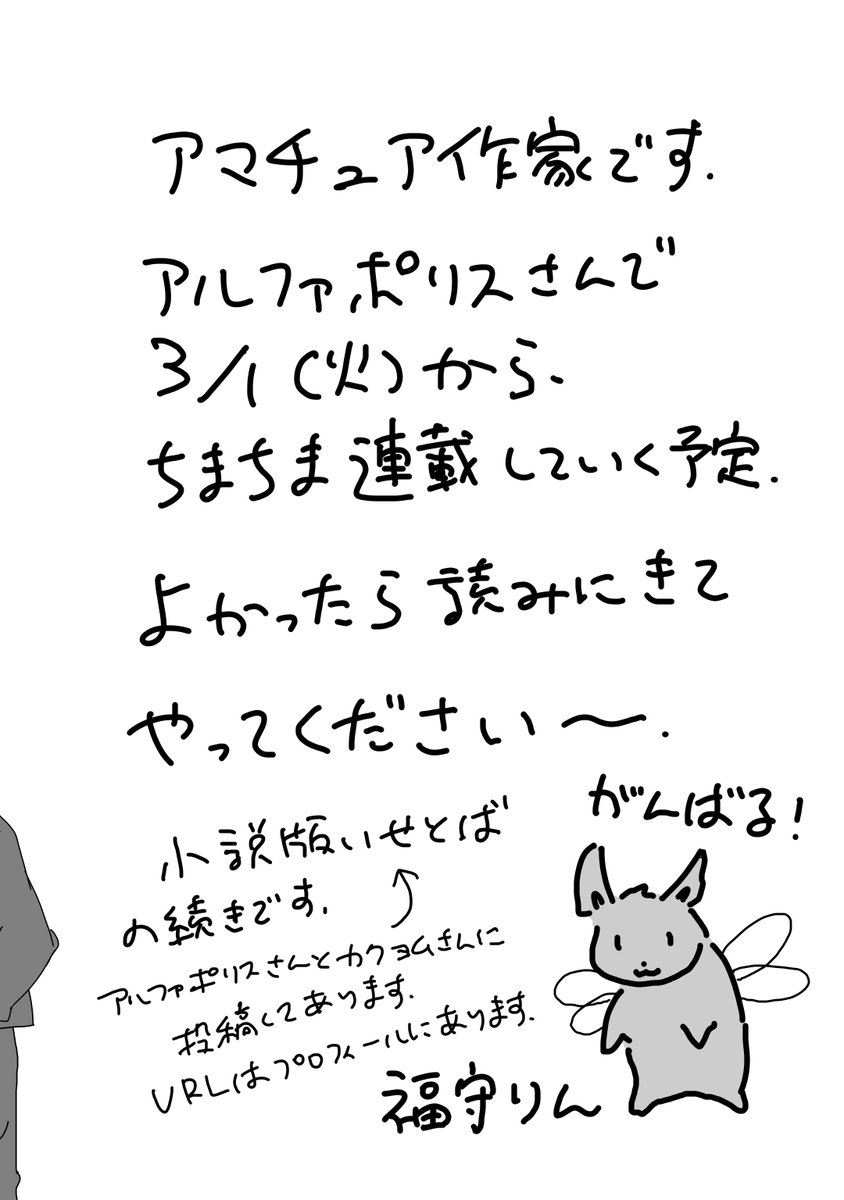 アマチュア作家です.
アルファポリスさんで
3/1(火)から.
ちまちま連載していく予定.
よかったら読みにきて
やってください〜.
がんばる!
小説版いせとば
の続きです.
アルファポリスさんとカクヨムさんに
投稿してあります.
URLはプロフィールにあります.
福守りん